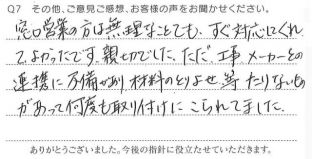 Q7 その他、ご意見ご感想、お客様の声をお聞かせください。
窓口営業の方は無理なことでも、すぐ対応にくれ
てよかったです。親切でした。ただ、工事、メーカーとの
連携に不備があり材料のとりよせ等たりないもの
があって何度も取り付けにこられてました。
ありがとうございました。今後の指針に役立たせていただきます。